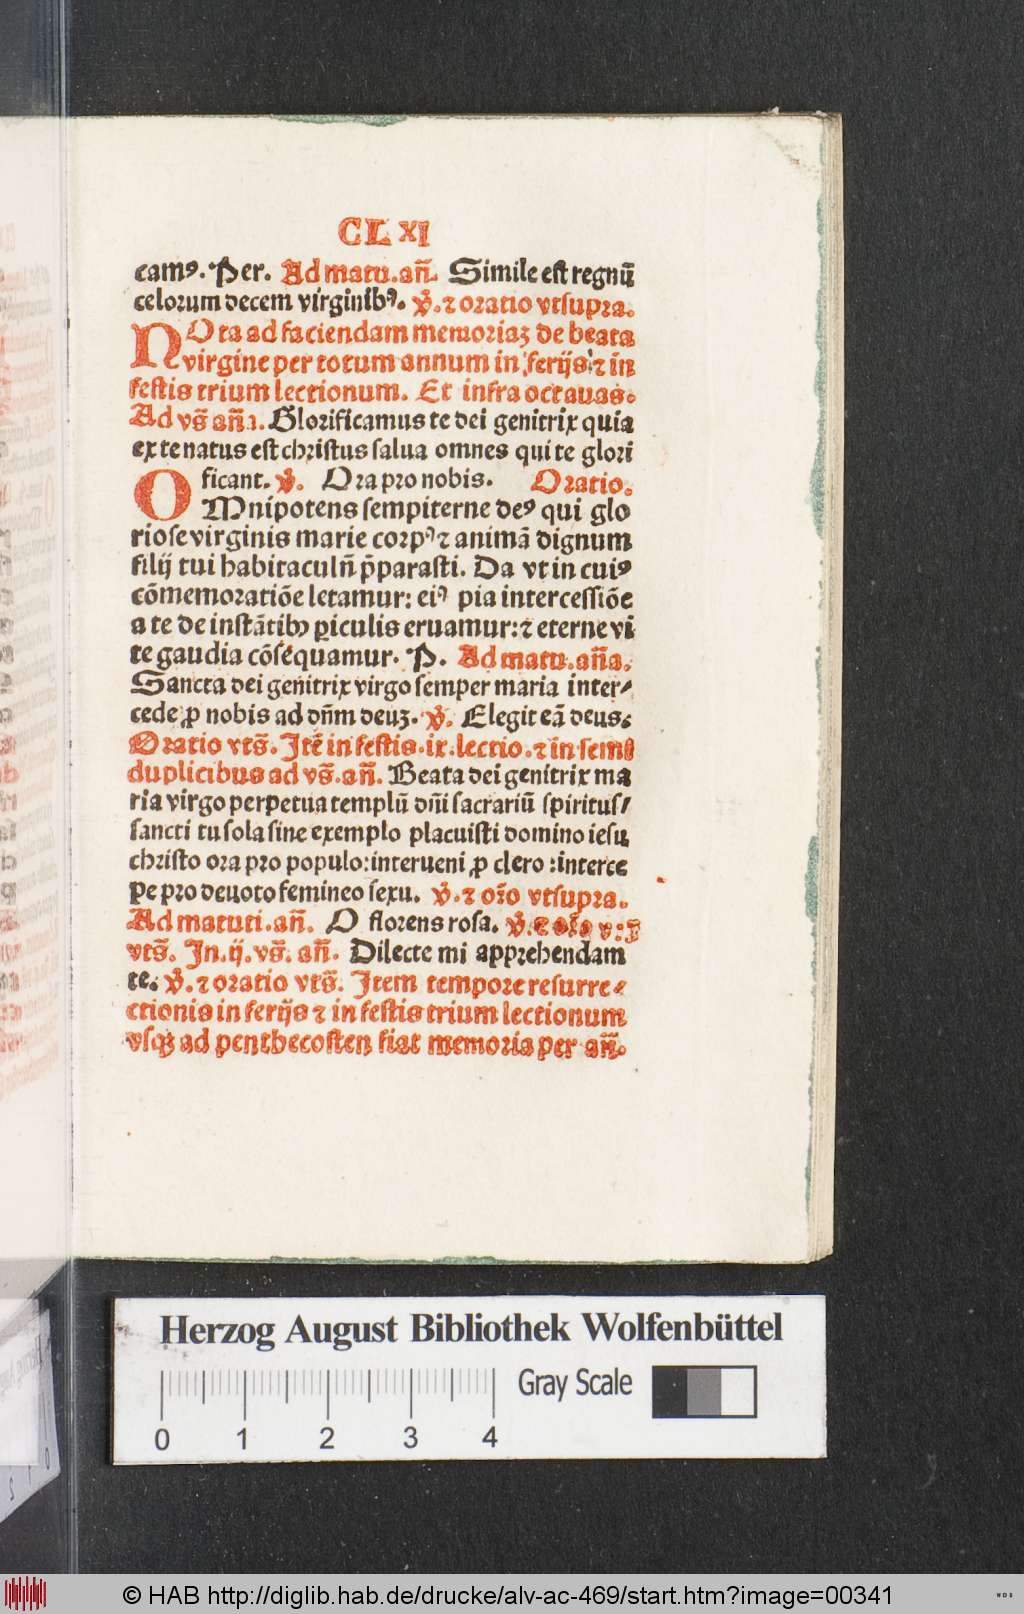 CLXI
eamꝰ. Per. Ad matu. an̄. Simile est regnū
celorum decem virginibꝰ. ꝟ. ⁊ oratio vtsupra.
NOta ad faciendam memoriaꝫ de beata
virgine per totum annum in ferijs: ⁊ in
festis trium lectionum. Et infra octauas.
Ad vs̄ an̄a. Glorificamus te dei genitrix quia
ex te natus est christus salua omnes qui te glori
ficant. ꝟ. Ora pro nobis. Oratio.
OMnipotens sempiterne deꝰ qui glo
riose virginis marie corpꝰ ⁊ animā dignum
filij tui habitaculū p̄parasti. Da vt in cuiꝰ
cōmemoratiōe letamur: eiꝰ pia intercessiōe
a te de instātibꝫ ꝑiculis eruamur: ⁊ eterne vi
te gaudia cōsequamur. P. Ad matu. an̄a.
Sancta dei genitrix virgo semper maria inter⸗
cede ꝓ nobis ad dn̄m deuꝫ. ꝟ. Elegit eā deus.
Oratio vts̄. Itē in festis .ix. lectio. ⁊ in semi
duplicibus ad vs̄. an̄. Beata dei genitrix ma
ria virgo perpetua templū dn̄i sacrariū spiritus/
sancti tu sola sine exemplo placuisti domino iesu
christo ora pro populo: interueni ꝓ clero: interce
pe pro deuoto femineo sexu. ꝟ. ⁊ or̄o vtsupra.
Ad matuti. an̄. O florens rosa. ꝟ.
vts̄. In .ij. vs̄. an̄. Dilecte mi apprehendam
te. ꝟ. ⁊ oratio vts̄. Item tempore resurre⸗
ctionis in ferijs ⁊ in festis trium lectionum
vsqꝫ ad penthecosten fiat memoria per an̄.
Herzog August Bibliothek Wolfenbüttel
Gray Scale
0 1 2 3 4
© HAB http://diglib.hab.de/drucke/alv-ac-469/start.htm?image=00341